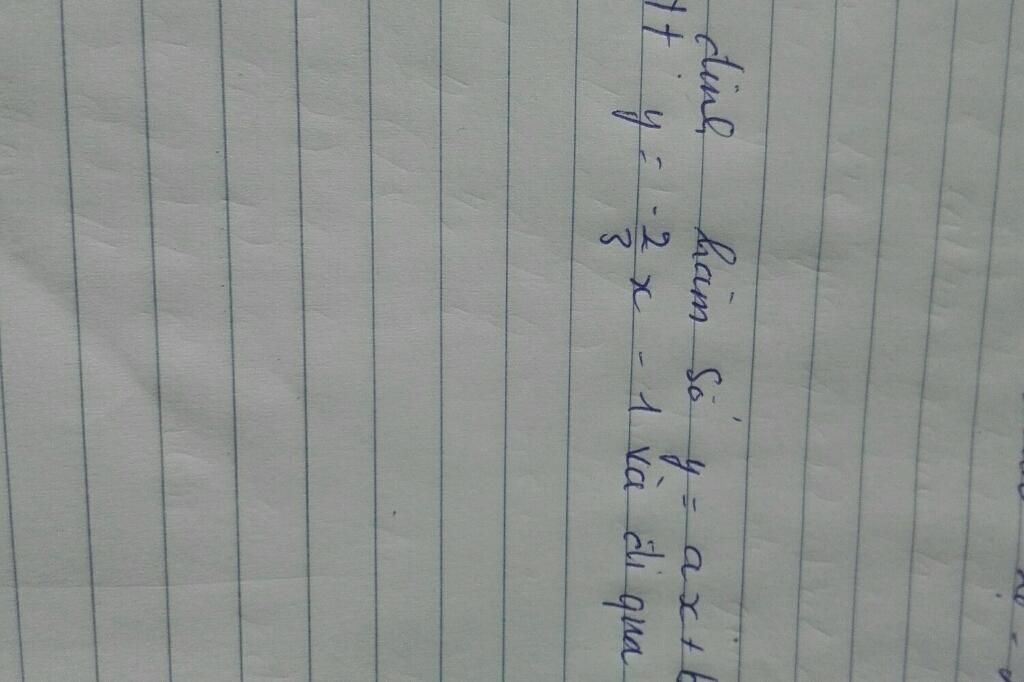 định hàm số y = ax + b
đt y = -2/3 x - 1 và đi qua